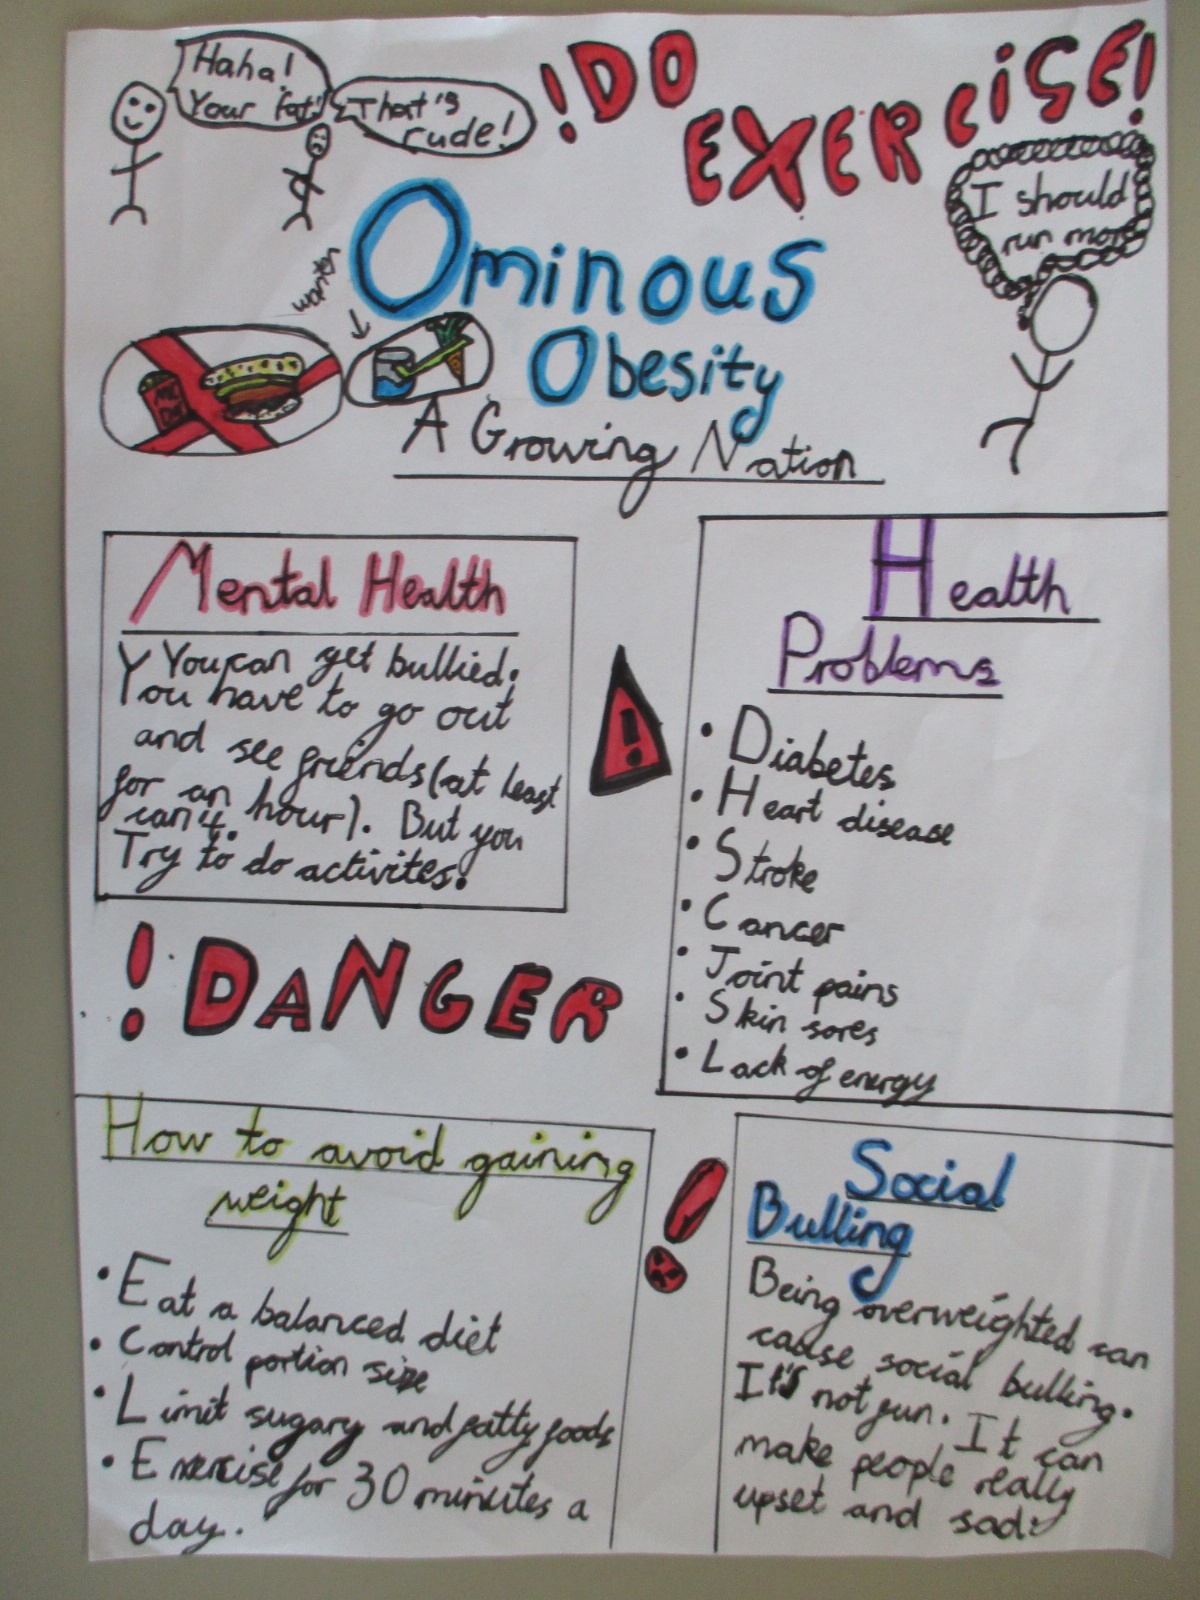 Haha!
Your fat!
That's
rude!
!DO
EXERCISE!
I should
run more
Ominous
Obesity
A Growing Nation
water
Mental Health
Y You can get bullied.
You have to go out
and see friends (at least
for an hour). But you
can't.
Try to do activites!
Health
Problems
• Diabetes
• Heart disease
• Stroke
• Cancer
• Joint pains
• Skin sores
• Lack of energy
!
! DANGER
How to avoid gaining
weight
• Eat a balanced diet
• Control portion size
• Limit sugary and fatty foods
• Exercise for 30 minutes a
day.
!
Social
Bulling
Being overweighted can
cause social bulling.
It's not fun. It can
make people really
upset and sad.